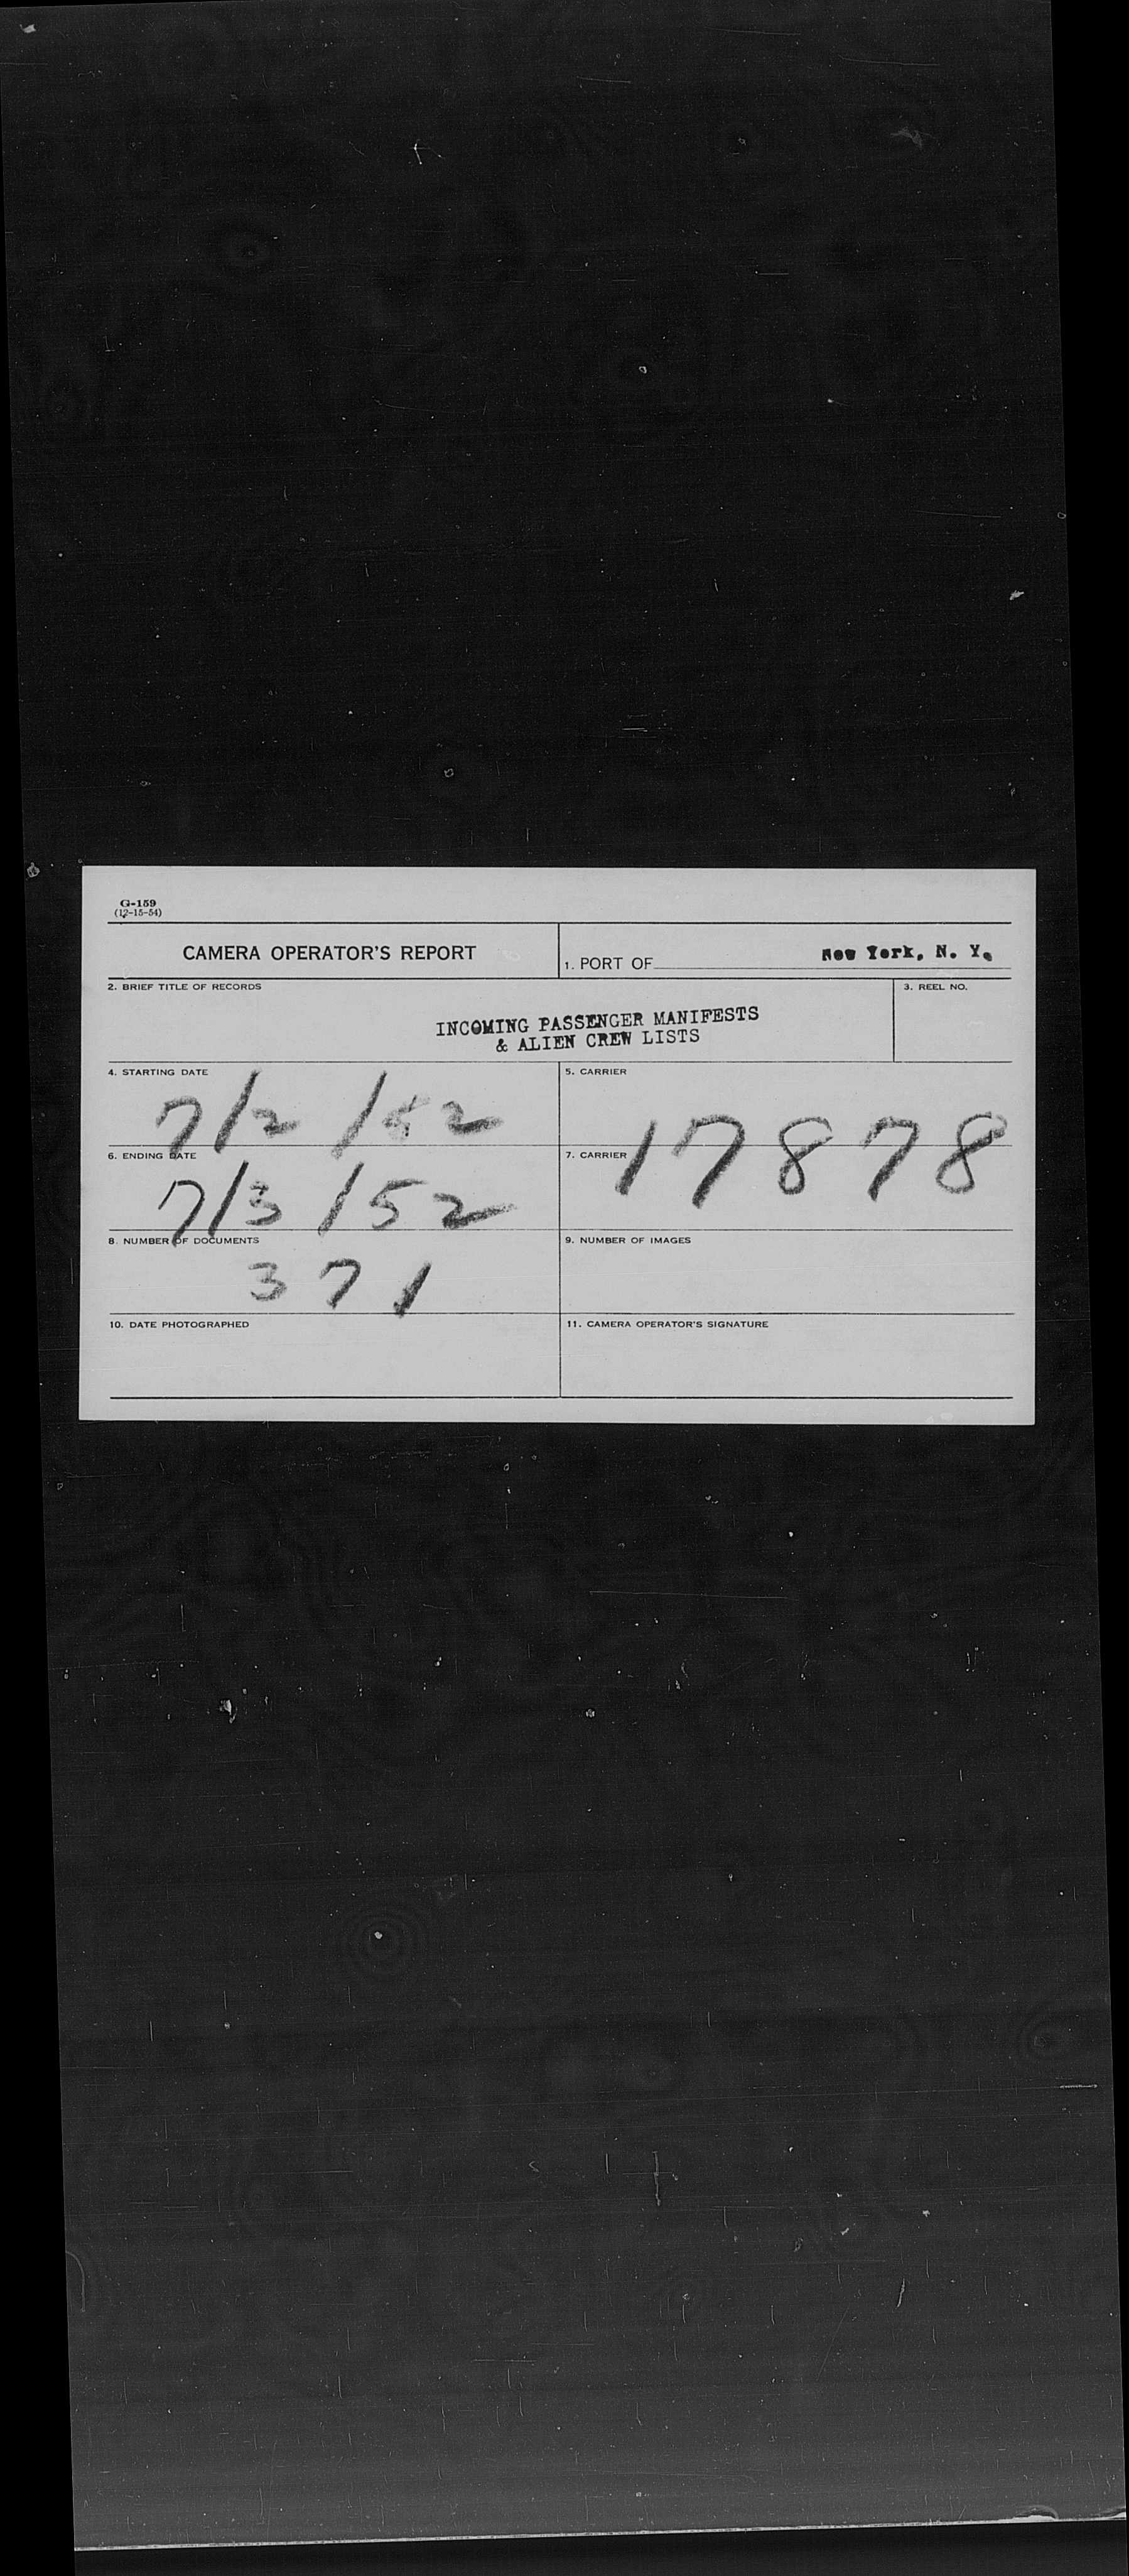 G-159
(12-15-54)
CAMERA OPERATOR'S REPORT
1. PORT OF New York, N. Y.
2. BRIEF TITLE OF RECORDS
3. REEL NO.
INCOMING PASSENGER MANIFESTS
& ALIEN CREW LISTS
4. STARTING DATE
7/2/52
5. CARRIER
6. ENDING DATE
7/3/52
7. CARRIER
17878
8. NUMBER OF DOCUMENTS
371
9. NUMBER OF IMAGES
10. DATE PHOTOGRAPHED
11. CAMERA OPERATOR'S SIGNATURE